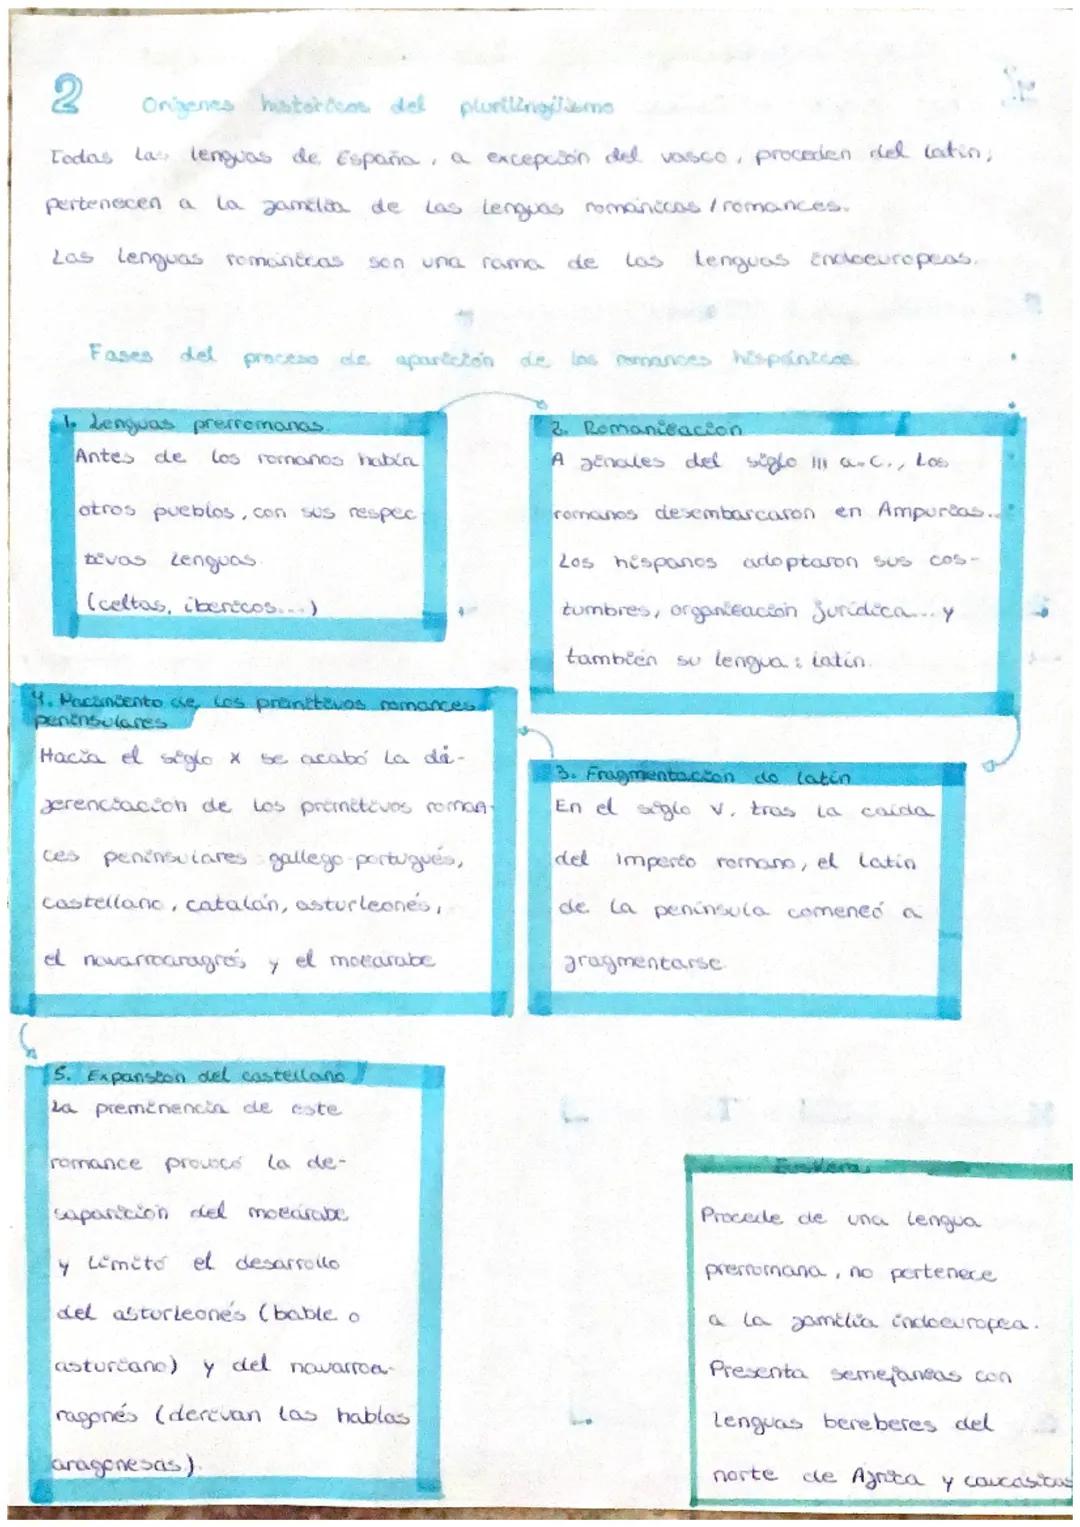 2 Orígenes históricos del plurilingüismo
Todas las lenguas de España, a excepción del vasco, proceden del latín;
pertenecen a la familia de las lenguas románicas / romances.
Las lenguas románicas son una rama de las lenguas indoeuropeas.
Fases del proceso de aparición de los romances hispánicos
1. Lenguas prerromanas.
Antes de los romanos había
otros pueblos, con sus respec
tivas lenguas.
(celtas, ibericos...)
2. Romanización
A finales del siglo III a.C., los
romanos desembarcaron en Ampurias...
Los hispanos adoptaron sus cos-
tumbres, organización jurídica... y
también su lengua: latín.
3. Fragmentación do latín
En el siglo V, tras la caída
del Imperio romano, el latín
de la península comenzó a
fragmentarse.
4. Nacimiento de los primitivos romances
peninsulares
Hacia el siglo X se acabó la di-
ferenciación de los primitivos roman-
ces peninsulares gallego-portugués,
castellano, catalán, asturleonés,
el navarroaragrés y el mozárabe
5. Expansión del castellano
La preminencia de este
romance provocó la de-
saparición del mozárabe
y limitó el desarrollo
del asturleonés (bable o
asturiano) y del navarroa-
ragonés (derivan las hablas
aragonesas).
Euskera
Procede de una lengua
prerromana, no pertenece
a la familia indoeuropea.
Presenta semejanzas con
lenguas bereberes del
norte de África y caucásicas